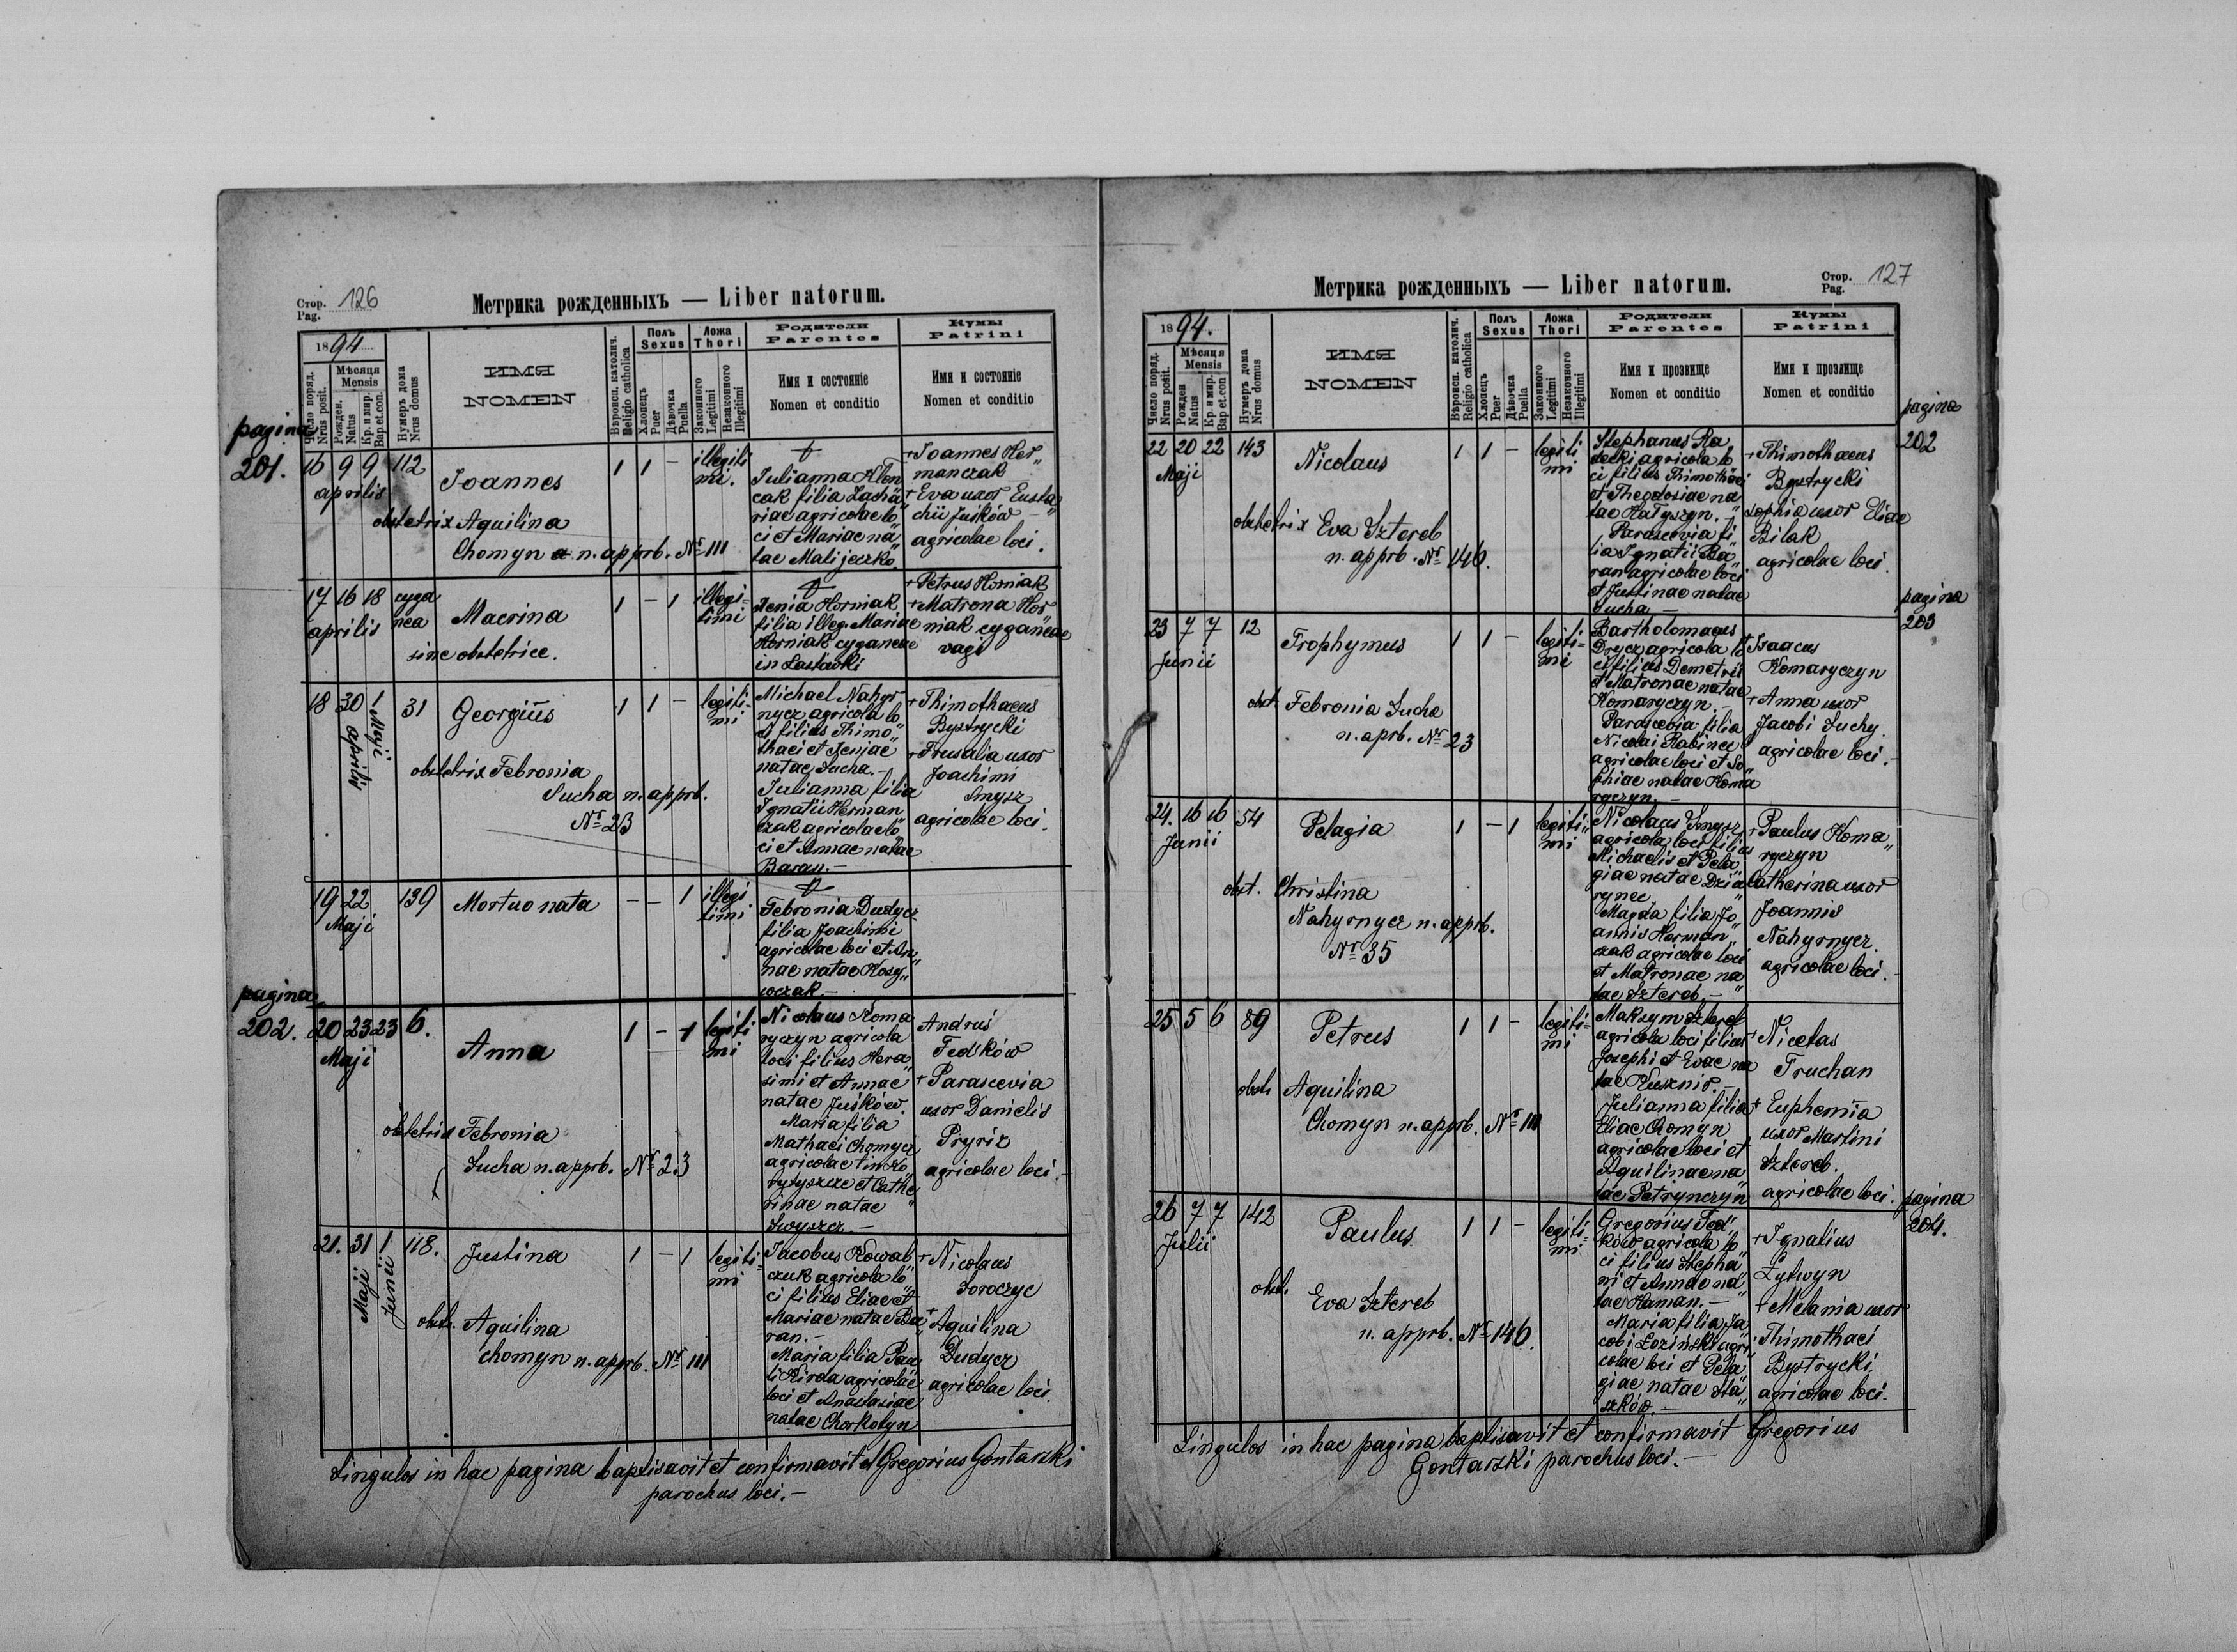 Стор. 126
Pag.
Метрика рожденныхъ — Liber natorum.
1894
Число поряд.
Nrus posit.
Мѣсяця
Mensis
Рожден.
Natus
Кр. и мир.
Bap. et con.
Нумеръ дома
Nrus domus
ИМЯ
NOMEN
Вѣроисп. католич.
Religio catholica
Полъ
Sexus
Хлопецъ
Puer
Дѣвочка
Puella
Ложа
Thori
Законного
Legitimi
Незаконного
Illegitimi
Родители
Parentes
Имя и состоянie
Nomen et conditio
Кумы
Patrini
Имя и состоянie
Nomen et conditio
pagina
201.
16 9 9 112
aprilis
Joannes
1 1 -
illegiti
mi.
obstetrix Aquilina
Chomyn a n. apprb. Nr 111
Julianna Klon
cak filia Zacha
riae agricolae lo
ci et Mariae na
tae Malijeczko
+ Joannes Her
manczak
+ Eva uxor Eusta
chii Juśków
agricolae loci.
17 16 18 cyga
nea
aprilis
Macrina
1 - 1
illegi=
timi
sine obstetrice.
Xenia Horniak
filia illeg. Mariae
Horniak cyganeae
in Lastówki
+ Petrus Horniak
+ Matrona Hor
niak cyganeae
vagi
18 30 1 31
aprilis
Maji
Georgius
1 1 -
legiti-
mi
obstetrix Febronia
Sucha n. apprb.
Nr 23
Michael Nahyr
nycz agricola lo
ci filius Thimo
thaei et Xeniae
natae Sucha. -
Julianna filia
Ignatii Herman
czak agricolae lo
ci et Annae natae
Baran. -
+ Thimothaeus
Bystrycki
+ Prusalia uxor
Joachimi
Smysz
agricolae loci.
19 22 139
Maji
Mortuo nata
- - 1
illegi
timi
Febronia Dudycz
filia Joachimi
agricolae loci et An
nae natae Kosy
wczak. -
pagina
202.
20 23 23 6.
Maji
Anna
1 - 1
legiti
mi
obstetrix Febronia
Sucha n. apprb. Nr 23
Nicolaus Koma
ryczyn agricola
loci filius Hera
simi et Annae
natae Juśków.
Maria filia
Mathaei Chomycz
agricolae tin Ko
rytyszcze et Cathe
rinae natae
Swyszcz. -
Andrus
Fedków
+ Parascevia
uxor Danielis
Pryriz
agricolae loci. -
21. 31 1 118.
Maji
Junii
Justina
1 - 1
legiti-
mi
obst. Aquilina
Chomyn n. apprb. Nr 111
Jacobus Kowal
czuk agricola lo
ci filius Eliae et
Mariae natae Ba
ran. -
Maria filia Pau
li Kirda agricolae
loci et Anastasiae
natae Chorkotyn
+ Nicolaus
Soroczyc
+ Aquilina
Dudycz
agricolae loci.
Singulos in hac pagina baptisavit et confirmavit Gregorius Gontarski
parochus loci. -
Стор. 127
Pag.
Метрика рожденныхъ — Liber natorum.
1894.
Число поряд.
Nrus posit.
Мѣсяця
Mensis
Рожден
Natus
Кр. и мир.
Bap. et con
Нумеръ дома
Nrus domus
ИМЯ
NOMEN
Вѣроисп. католич.
Religio catholica
Полъ
Sexus
Хлопецъ
Puer
Дѣвочка
Puella
Ложа
Thori
Законного
Legitimi
Незаконного
Illegitimi
Родители
Parentes
Имя и прозвище
Nomen et conditio
Кумы
Patrini
Имя и прозвище
Nomen et conditio
pagina
202
22 20 22 143
Maji
Nicolaus
1 1 -
legiti
mi
obstetrix Eva Sztereb
n. apprb. Nr 146.
Stephanus Ra
decki agricola lo
ci filius Thimothaei
et Theodosiae na
tae Hatyszyn. -
Parascevia fi
lia Ignatii Ba
ran agricolae loci
et Justinae natae
Sucha -
+ Thimothaeus
Bystrycki
Sophia uxor Eliae
Bilak
agricolae loci.
pagina
203
23 7 7 12
Junii
Trophymus
1 1 -
legiti=
mi
obst. Febronia Sucha
n. aprb. Nr 23
Bartholomaeus
Drycz agricola lo
ci filius Demetrii
et Matronae natae
Komaryczyn. -
Parascevia filia
Nicolai Rabinec
agricolae loci et So
phiae natae Koma
ryczyn. -
+ Isaacus
Komaryczyn
+ Anna uxor
Jacobi Suchy.
agricolae loci. -
24. 16 16 54
Junii
Pelagia
1 - 1
legiti=
mi
obst. Christina
Nahyrnycz n. apprb.
Nr 35
Nicolaus Smysz
agricola loci filius
Michaelis et Pela
giae natae Dziu
rynec,
Magda filia Jo
annis Herman
czak agricolae loci
et Matronae na
tae Sztereb. -
+ Paulus Koma
ryczyn
Catherina uxor
Joannis
Nahyrnycz.
agricolae loci. -
25 5 6 89
Petrus
1 1 -
legiti=
mi
obst. Aquilina
Chomyn n. apprb. Nr 111
Maksym Sztereb
agricola loci filius
Josephi et Evae na
tae Kusznir. -
Julianna filia
Eliae Chomyn
agricolae loci et
Aquilinae na
tae Petrynczyn
+ Nicetas
Truchan
+ Euphemia
uxor Martini
Sztereb.
agricolae loci.
pagina
204.
26 7 7 142
Julii
Paulus
1 1 -
legiti=
mi
obst. Eva Sztereb
n. apprb. Nr 146.
Gregorius Fed
ków agricola lo
ci filius Stepha
ni et Annae na
tae Haman. -
Maria filia Ja
cobi Łoziński agri
colae loci et Pela
giae natae Sta
szków. -
+ Ignatius
Łytwyn
+ Melania uxor
Thimothaei
Bystrycki
agricolae loci.
Singulos in hac pagina baptisavit et confirmavit Gregorius
Gontarski parochus loci. -